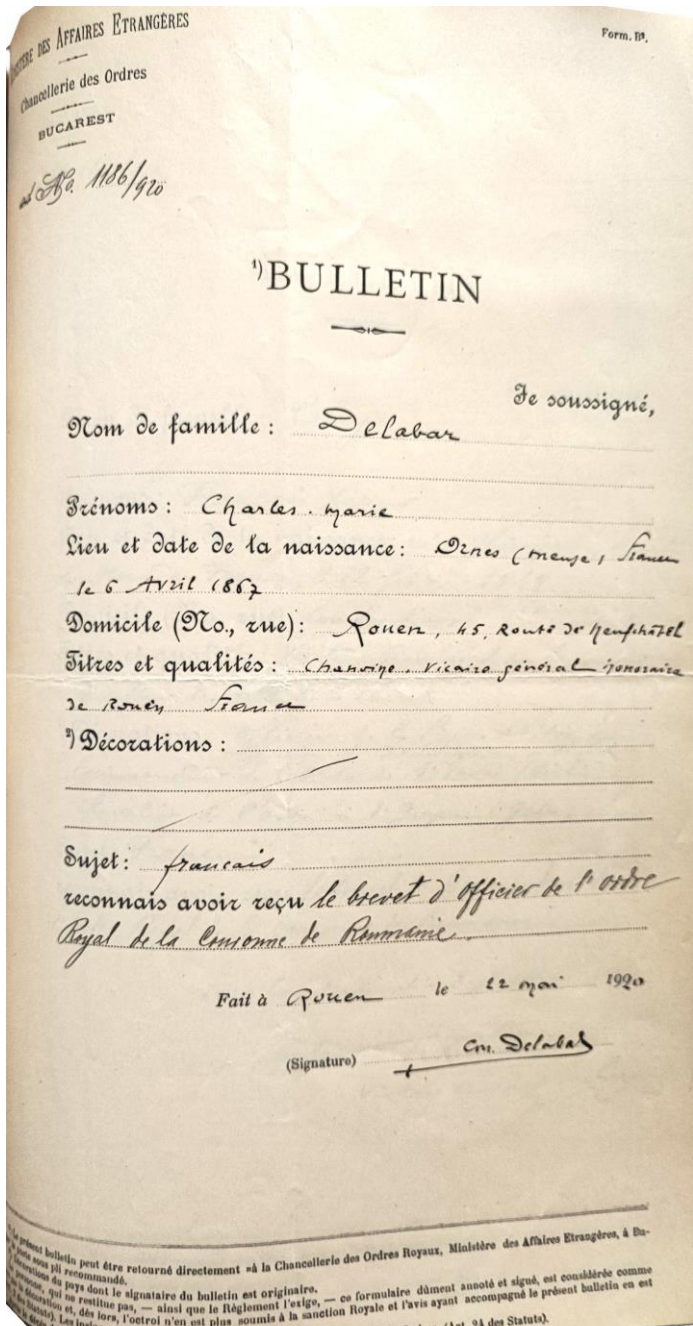 MINISTÈRE DES AFFAIRES ETRANGÈRES
Chancellerie des Ordres
BUCAREST
ad No. 1186/920
Form. B².
¹)BULLETIN
Je soussigné,
Nom de famille : Delabar
Prénoms : Charles. Marie
Lieu et date de la naissance : Ornes (Meuse) France
le 6 Avril 1867
Domicile (No., rue) : Rouen, 45, Route de Neufchâtel
Titres et qualités : Chanoine. Vicaire général honoraire
de Rouen France
²) Décorations :
Sujet : francais
reconnais avoir reçu le brevet d'officier de l'ordre
Royal de la Couronne de Roumanie.
Fait à Rouen le 22 mai 1920
(Signature) Ch. Delabar
présent bulletin peut être retourné directement »à la Chancellerie des Ordres Royaux, Ministère des Affaires Etrangères, à Bu-
sous pli recommandé.
décorations du pays dont le signataire du bulletin est originaire.
qui ne restitue pas, — ainsi que le Règlement l'exige, — ce formulaire dûment annoté et signé, est considérée comme
la décoration et, dès lors, l'octroi n'en est plus soumis à la sanction Royale et l'avis ayant accompagné le présent bulletin en est
24 des Statuts).